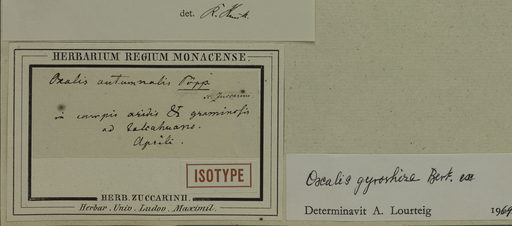 det. R. Knuth.
HERBARIUM REGIUM MONACENSE.
Oxalis autumnalis Pöpp
in campis aridis & graminosis
ad Talcahuano.
Aprili.
ISOTYPE
HERB. ZUCCARINII.
Herbar. Univ. Ludov. Maximil.
Oxalis gyrorhiza Bert. ex
Determinavit A. Lourteig 196